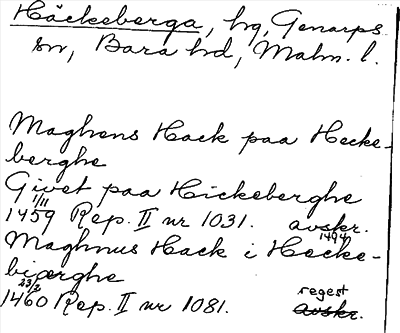 Häckeberga, hg, Genarps
sn, Bara hd, Malm. l.
Maghens Hack paa Hecke-
berghe
Givet paa Hickeberghe
1/11
1459 Rep. II nr 1031. avskr.
1494
Maghnus Hack i Hecke-
biærghe
23/2
1460 Rep. II nr 1081. regest
avskr.